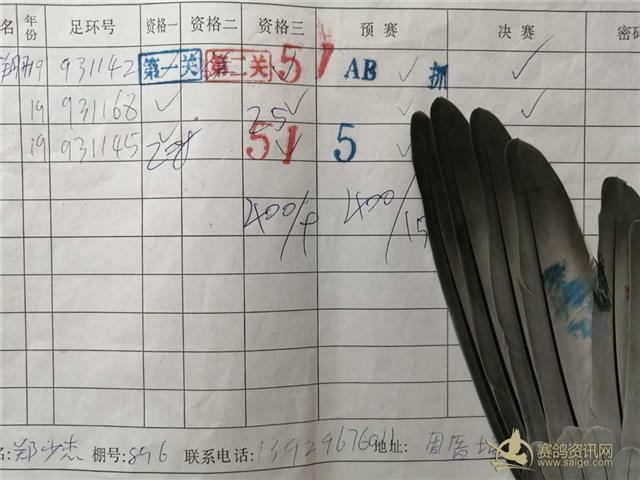 名 年份 足环号 资格一 资格二 资格三 预赛 决赛 密码
翔 19 931142 第一关 第二关 51 AB 抓
19 931168 25
19 931145 51 5
400/ 400/15
名:郑少杰 棚号:896 联系电话:13929676911 地址: 周
赛鸽资讯网
www.saige.com